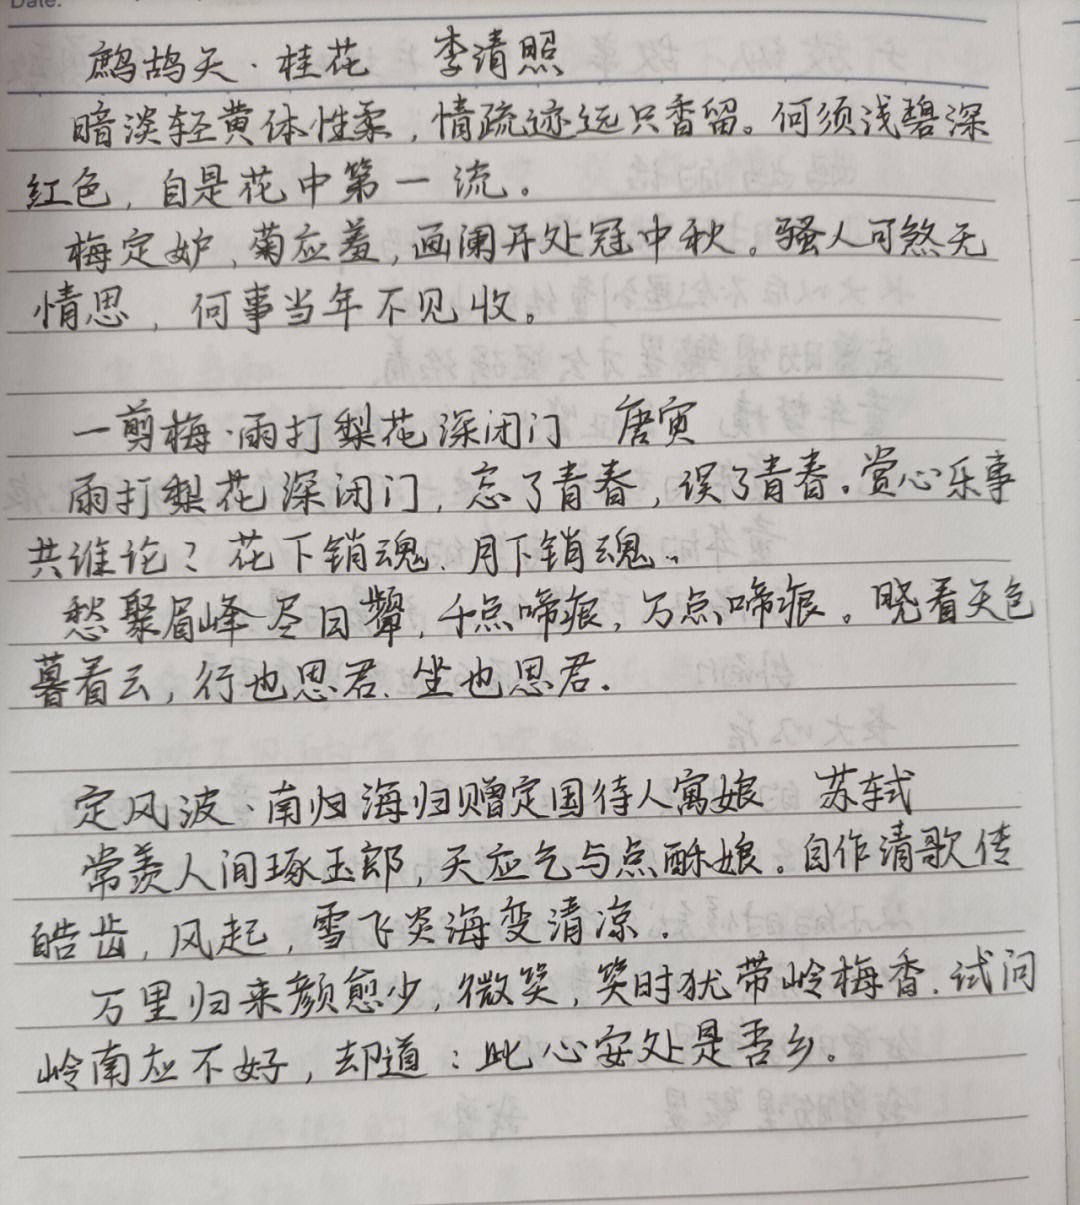 Date.
鹧鸪天·桂花 李清照
暗淡轻黄体性柔，情疏迹远只香留。何须浅碧深
红色，自是花中第一流。
梅定妒，菊应羞，画阑开处冠中秋。骚人可煞无
情思，何事当年不见收。
一剪梅·雨打梨花深闭门 唐寅
雨打梨花深闭门，忘了青春，误了青春。赏心乐事
共谁论？花下销魂、月下销魂。
愁聚眉峰尽日颦，千点啼痕，万点啼痕。晓看天色
暮看云，行也思君、坐也思君.
定风波·南归海归赠定国待人寓娘 苏轼
常羡人间琢玉郎，天应乞与点酥娘。自作清歌传
皓齿，风起，雪飞炎海变清凉.
万里归来颜愈少，微笑，笑时犹带岭梅香.试问
岭南应不好，却道：此心安处是吾乡。